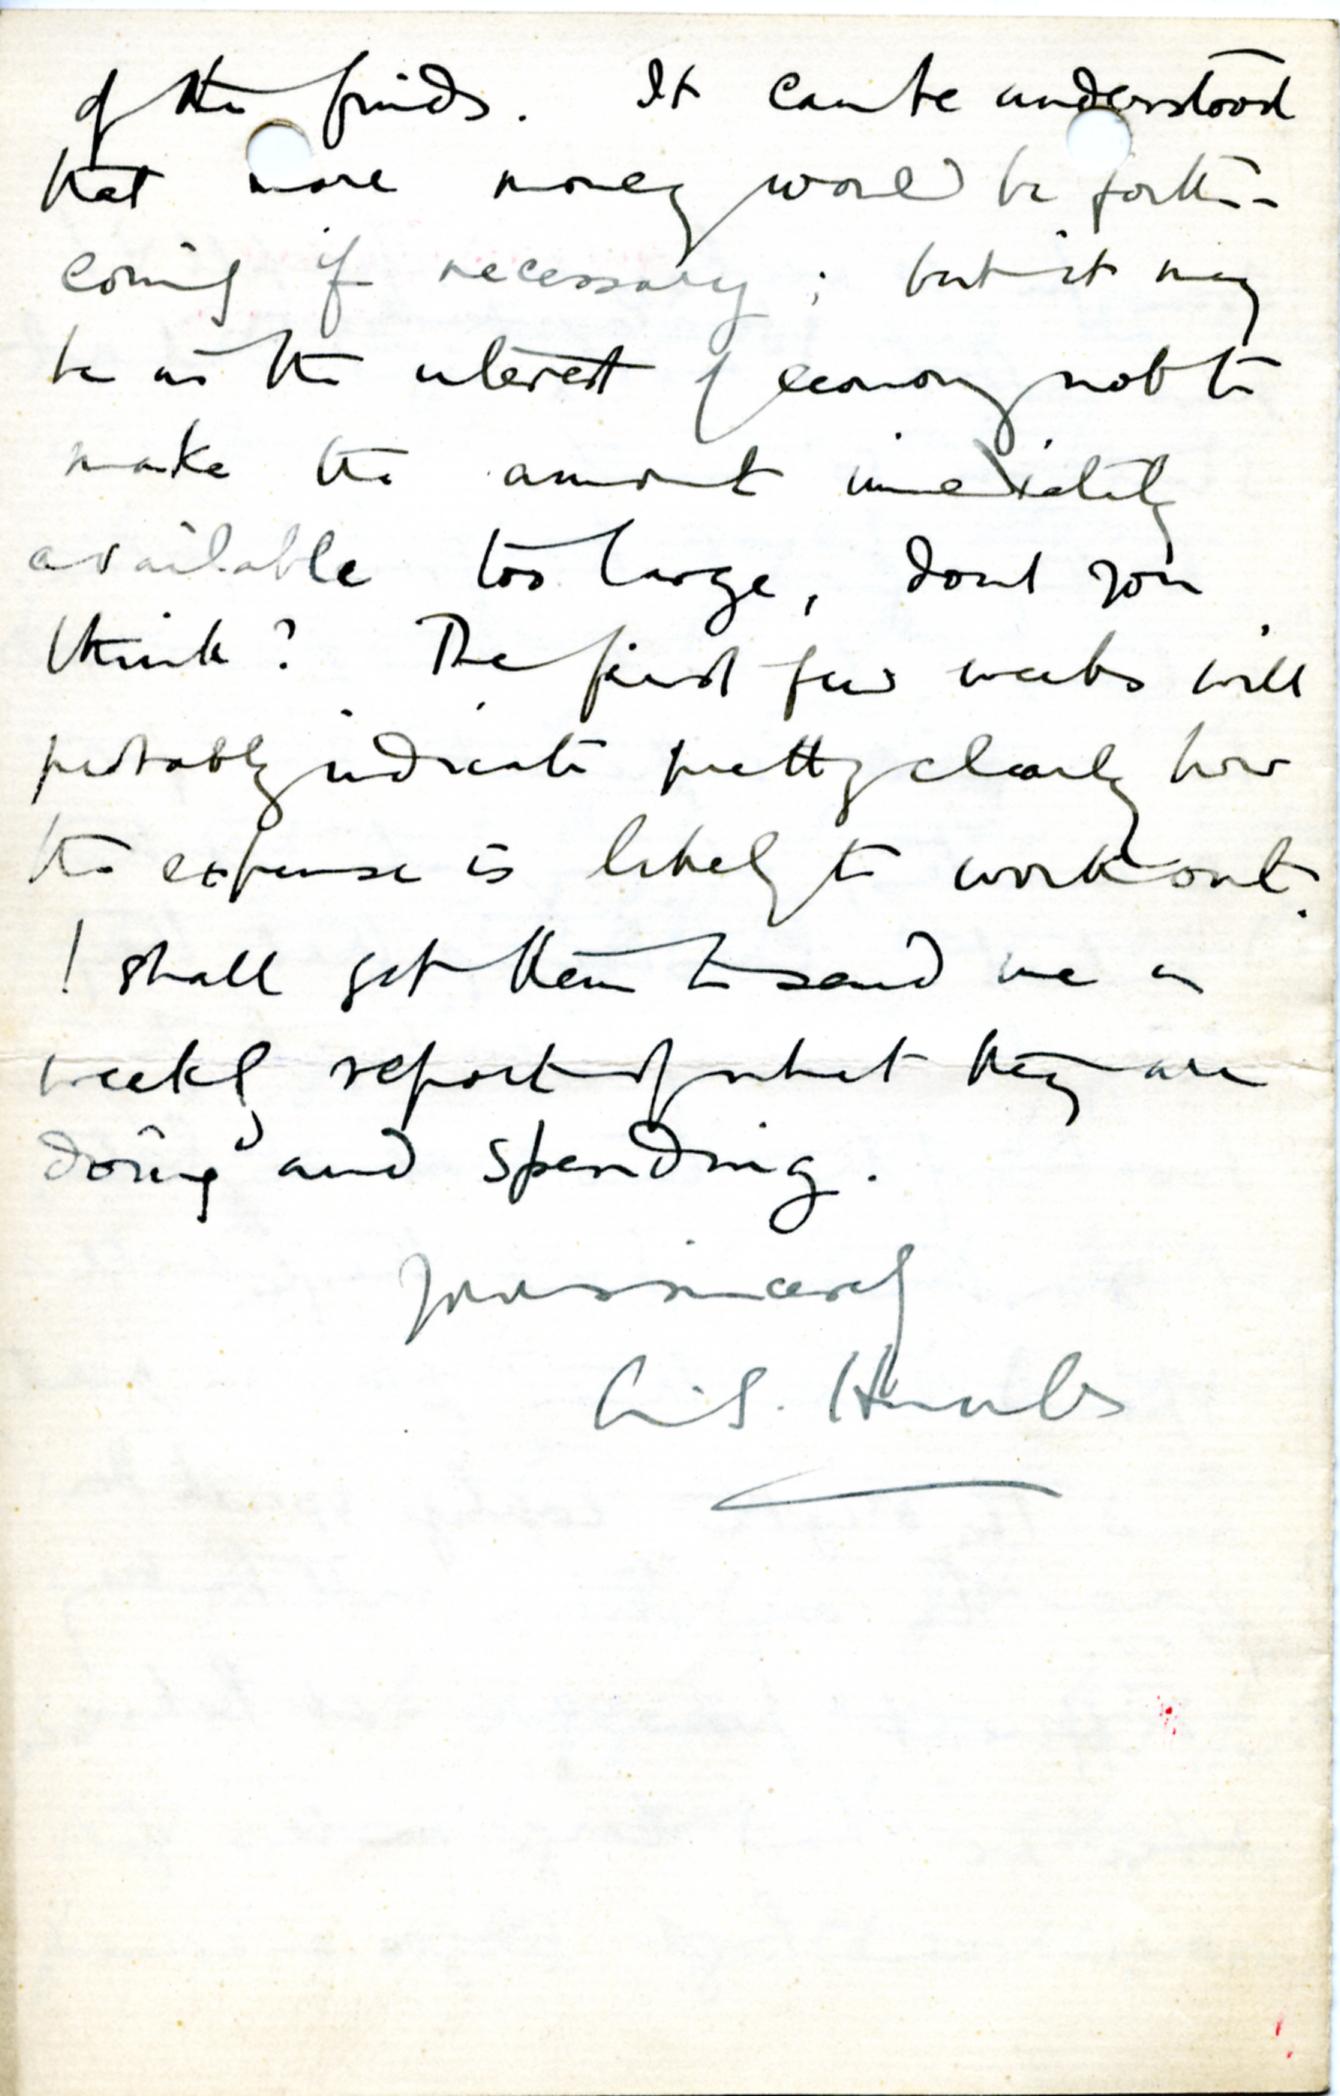 of the funds. It can be understood
that more money would be forth-
coming if necessary; but it may
be in the interest of economy not to
make the amount immediately
available too large, dont you
think? The first few weeks will
probably indicate pretty clearly how
the expense is likely to work out.
I shall get them to send me a
weekly report of what they are
doing and spending.
Yours sincerely